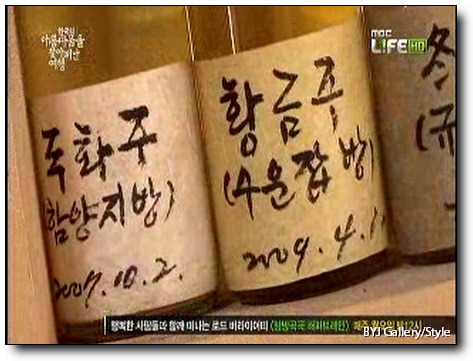 한국의
아름다움을
찾아떠난
여행
mbc
LIFE HD
국화주
(함양지방)
2007.10.2.
황금주
(수운잡방)
2009.4.1
冬
(규
행복한 사람들과 함께 떠나는 로드 버라이어티 해피트레인> 매주 월요일 밤12시
BYJ Gallery/Style